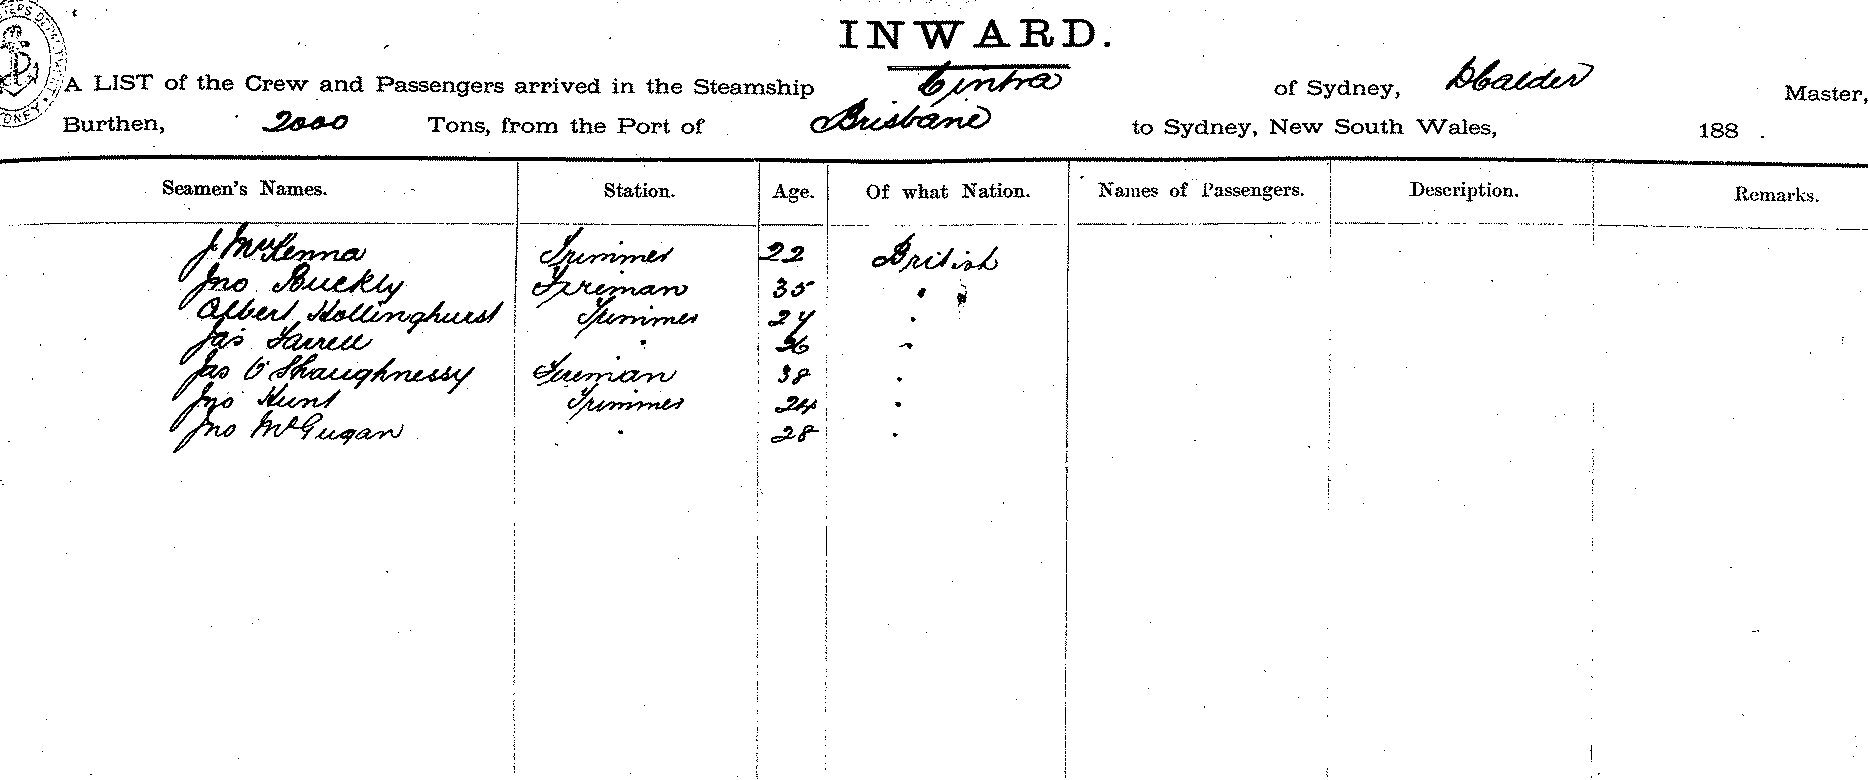 INWARD.
A LIST of the Crew and Passengers arrived in the Steamship Cintra of Sydney, D Calder Master,
Burthen, 2000 Tons, from the Port of Brisbane to Sydney, New South Wales, 188 .
Seamen's Names. Station. Age. Of what Nation. Names of Passengers. Description. Remarks.
J McKenna Trimmer 22 British
Jno Buckly Fireman 35 "
Albert Hollinghurst Trimmer 24 "
Jas Farrell " 26 "
Jas O'Shaughnessy Fireman 38 "
Jno Hunt Trimmer 24 "
Jno McGugan " 28 "